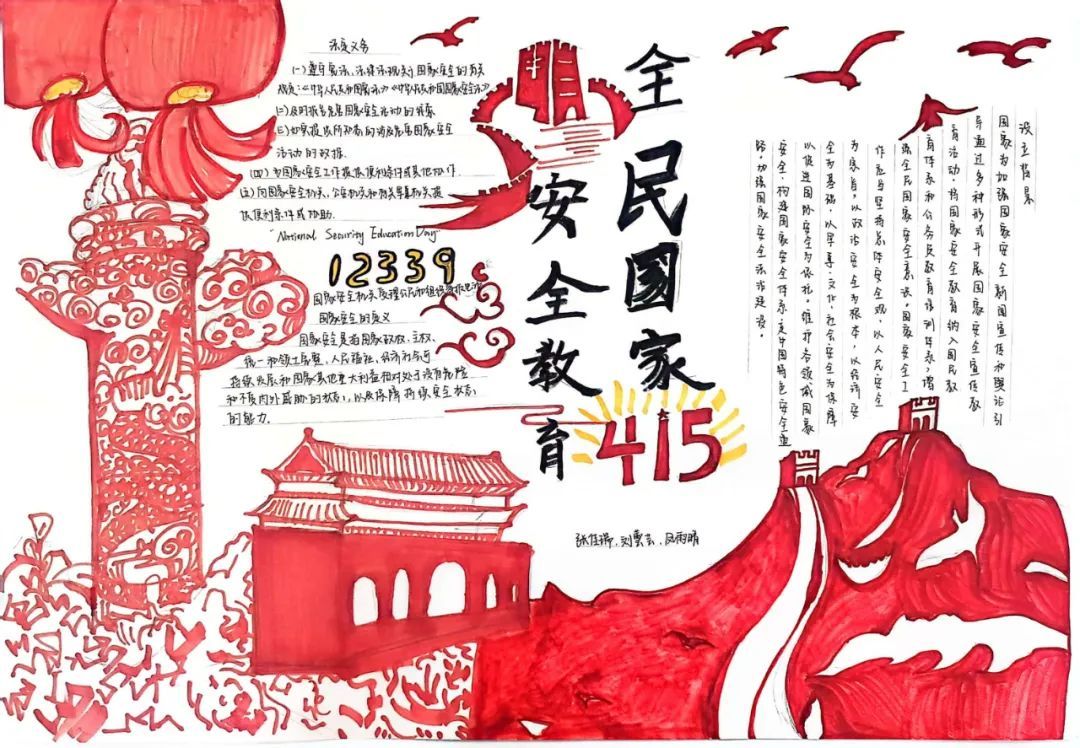 法定义务
(一)遵守宪法、法律法规关于国家安全的有关
规定:《中华人民共和国宪法》《中华人民共和国国家安全法》
(二)及时报告危害国家安全活动的线索
(三)如实提供所知悉的涉及危害国家安全
活动的证据.
(四)为国家安全工作提供便利条件或其他协作
(五)向国家安全机关、公安机关和有关军事机关提
供便利条件或协助.
"National Security Education Day"
12339
国家安全机关受理公民和组织举报电话
国家安全的意义
国家安全是指国家政权、主权、
统一和领土完整、人民福祉、经济社会可
持续发展和国家其他重大利益相对处于没有危险
和不受内外威胁的状态,以及保障持续安全状态
的能力.
全民國家
安全教育
415
设立背景
国家为加强国家安全新闻宣传和舆论引
导通过多种形式开展国家安全宣传教
育活动,将国家安全教育纳入国民教
育体系和公务员教育培训体系,增
强全民国家安全意识。国家安全工
作应当坚持总体安全观,以人民安全
为宗旨,以政治安全为根本,以经济安
全为基础,以军事、文化、社会安全为保障
以促进国际安全为依托,维护各领域国家
安全,构建国家安全体系,走中国特色安全道
路,加强国家安全法治建设。